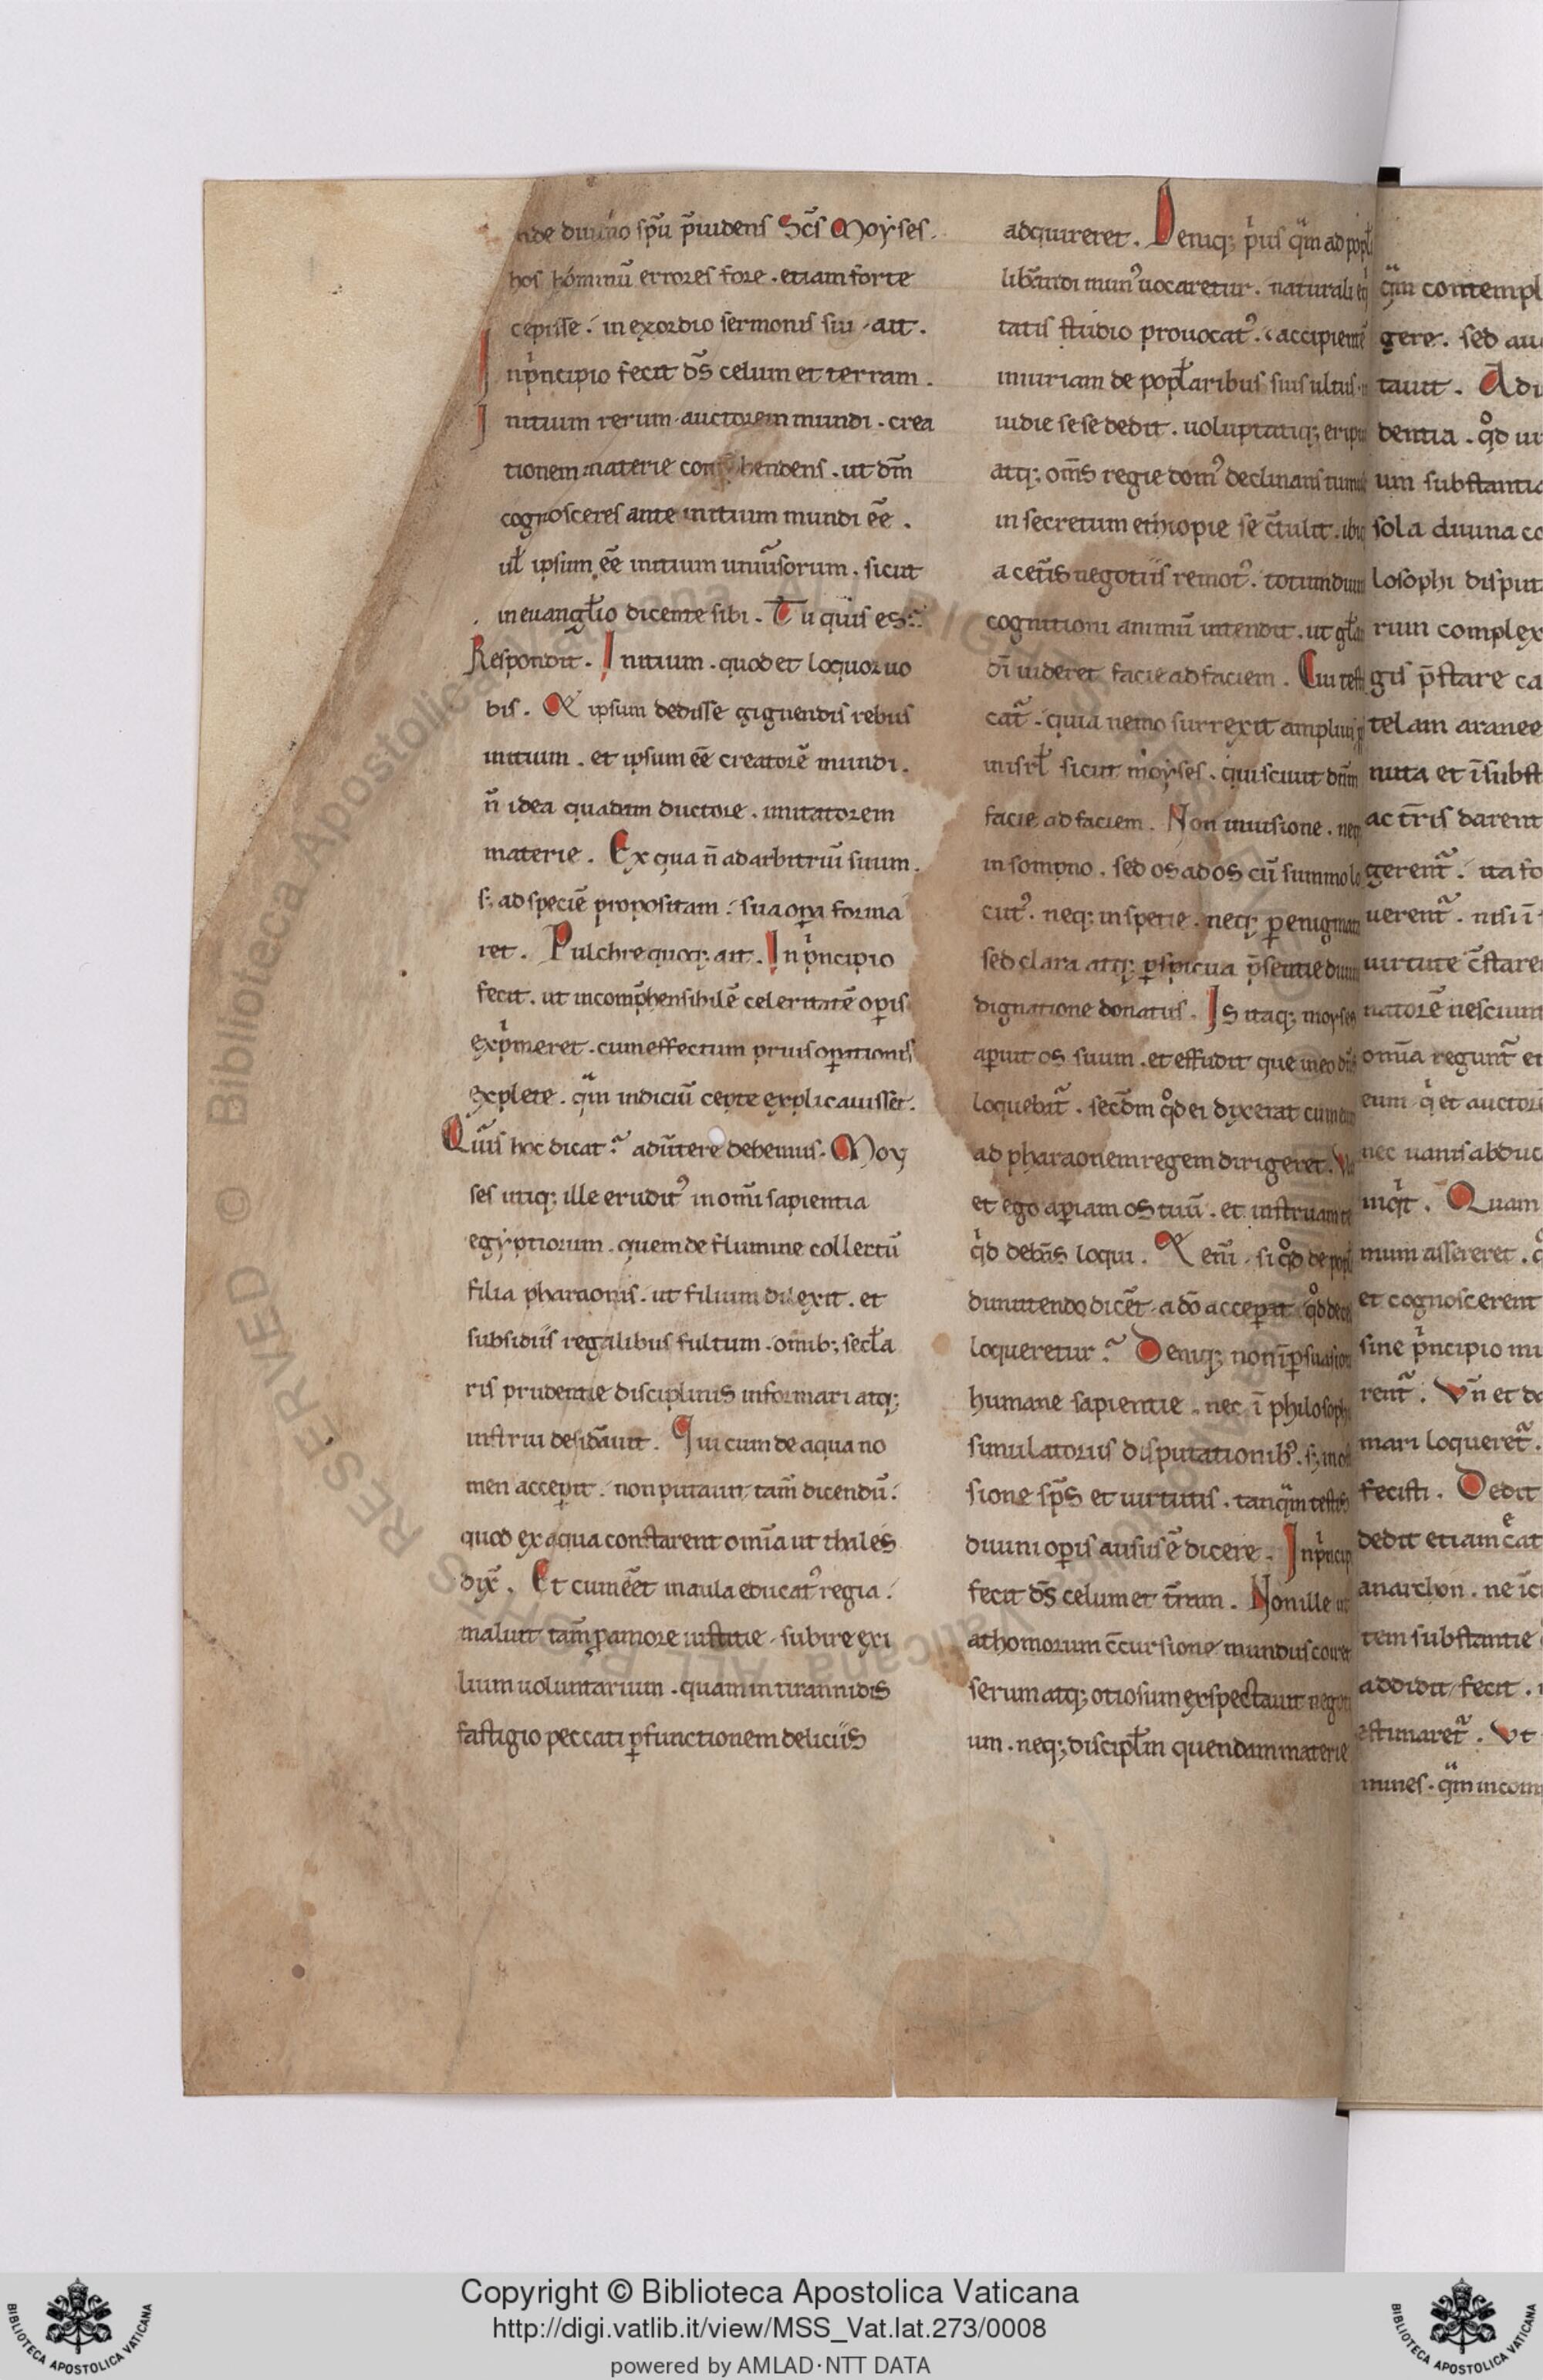 nde diuino sp̄u p̄uidens Sc̄s Moyses.
hos hominū errores fore . etiam forte
cepisse . in exordio sermonis sui . ait .
Inp̍ncipio fecit d̄s celum et terram .
Initium rerum . auctorem mundi . crea
tionem materie conp̄hendens . ut dm̄
cognosceres ante initium mundi ēē .
ul̄ ipsum ēē initium uniūsorum . sicut
in euangl̄io dicente sibi . Tu quis es?
Respondit . Initium . quod et loquor uo
bis . Et ipsum dedisse gignendis rebus
initium . et ipsum ēē creatorē mundi .
n̄ idea quadam ductore . imitatorem
materie . Ex qua n̄ ad arbitriū suum .
s; ad speciē propositam . sua oꝑa forma
ret . Pulchre quoq; ait . Inp̍ncipio
fecit . ut incomp̄hensibilē celeritatē oꝑis
exp̍meret . cum effectum prius oꝑationis
explete . qͣm indiciū cepte explicauisset .
Quis hoc dicat᷑ adūtere debemus . Moy
ses utiq; ille erudit⁹ in omī sapientia
egyptiorum . quem de flumine collectū
filia pharaonis . ut filium dilexit . et
subsidiis regalibus fultum . omib; secl̄a
ris prudentie disciplinis informari atq;
instrui desid̄auit . Qui cum de aqua no
men acceꝑit . non putauit tam̄ dicendū .
quod ex aqua constarent omīa ut thales
dix̄ . Et cum ēēt in aula educat⁹ regia .
maluit tam̄ ꝓ amore iustitie . subire exi
lium uoluntarium . quam in tirannidis
fastigio peccati ꝑfunctionem deliciis
adquireret . Deniq; p̍us qͣm ad popl̄i
lib̄andi mun⁹ uocaretur . naturali eq̍
tatis studio prouocat⁹ . accipientē
iniuriam de popl̄aribus suis ultus .
iudie sese dedit . uoluptatiq; eripu
atq; om̄s regie dom⁹ declinans tumul
in secretum ethiopie se c̄tulit . ibiq
a cet̄is negotiis remot⁹ . totum diuin
cognitioni animū intendit . ut gl̄am
dī uideret facie ad faciem . Cui testi
cat᷑ . quia nemo surrexit amplius p
in isrl̄ sicut moyses . qui sciuit dn̄m
facie ad faciem . Non in uisione . neq
in sompno . sed os ad os cū summo lo
cut⁹ . neq; in spetie . neq; ꝑ enigmata
sed clara atq; ꝑspicua p̄sentie diuin
dignatione donatus . Is itaq; moyses
aꝑuit os suum . et effudit que in eo dn̄s
loquebat᷑ . secd̄m qͦd ei dixerat cum eum
ad pharaonem regem dirigeret . Va
et ego aꝑiam os tuū . et instruam te
q̍d debeās loqui . Et enī . si qͦd de popl̄i
dimittendo dicēt . a dō acceꝑat qͦd dece
loqueretur? Deniq; non ī ꝑsuasion
humane sapientie . nec ī philosophi
simulatoriis disputationib⁹ . s; in ost
sione sp̄s et uirtutis . tanqͣm testis
diuini oꝑis ausus ē dicere . Inp̍ncip
fecit d̄s celum et t̄ram . Non ille ut
athomorum c̄cursione mundus coiret
serum atq; otiosum exspectauit negoti
um . neq; discipl̄m quendam materie
qͣm contempl
gere . sed au
tauit . Adi
dentia . qͦd ui
um substantia
sola diuina co
losophi disput
rum complex
gis p̄stare ca
telam aranee
nuta et īsubst
ac t̄ris darent
gerent᷑ . ita fo
uerent᷑ . nisi ī
uirtute c̄stare
natorē nesciun
omīa regunt᷑ et
eum q̍ et auctore
nec uanis abduc
inqͥt . Quam
mum assereret .
et cognoscerent
sine p̍ncipio mu
rent᷑ . Vn̄ et da
mari loqueret᷑ .
fecisti . Dedit
dedit etiam c̄at
anarchon . ne īc
tem substantie
addidit fecit .
estimaret᷑ . Vt
mines . qͣm incom
Copyright © Biblioteca Apostolica Vaticana
http://digi.vatlib.it/view/MSS_Vat.lat.273/0008
powered by AMLAD·NTT DATA
BIBLIOTECA APOSTOLICA VATICANA
BIBLIOTECA APOSTOLICA VATICANA
© Biblioteca Apostolica Vaticana ALL RIGHTS RESERVED